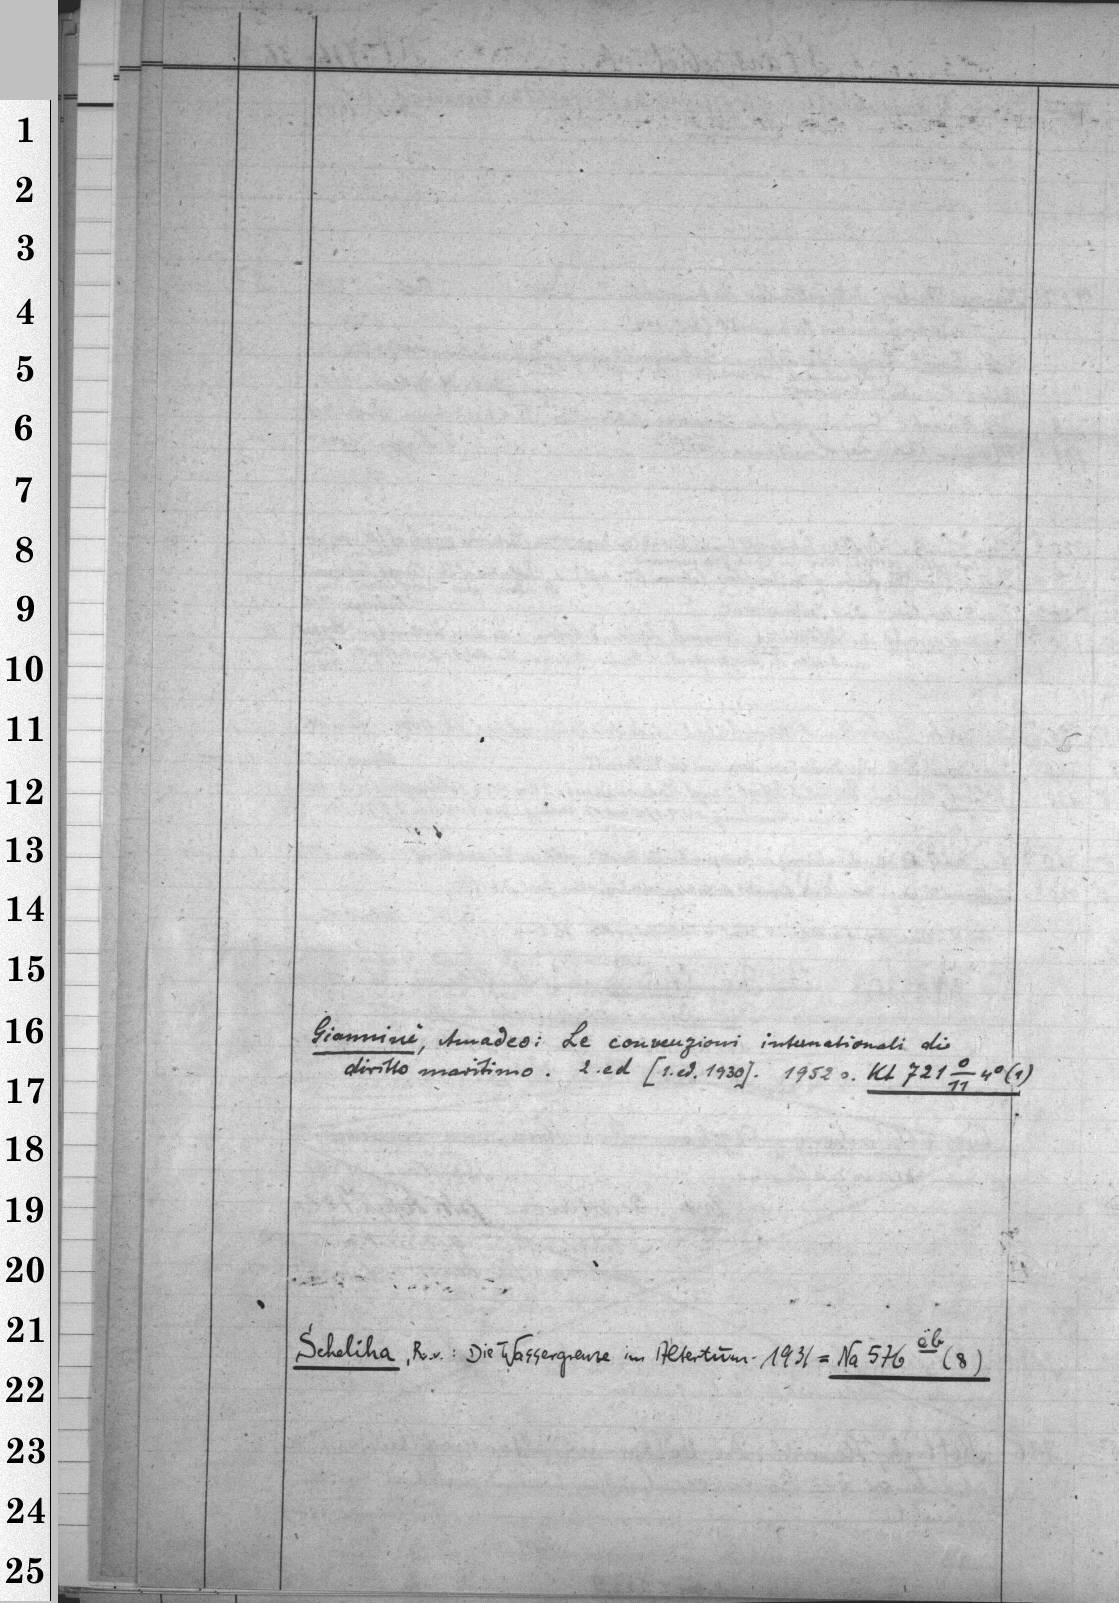 1
2
3
4
5
6
7
8
9
10
11
12
13
14
15
16
17
18
19
20
21
22
23
24
25
Giannini, Amadeo: Le convenzioni internationali di
diritto maritimo. 2. ed [1. ed. 1930]. 1952 o. Kt 721 o/11 4° (1)
Scheliha, R. v.: Die Wassergrenze im Altertum. 1931 = Na 576 eb (8)